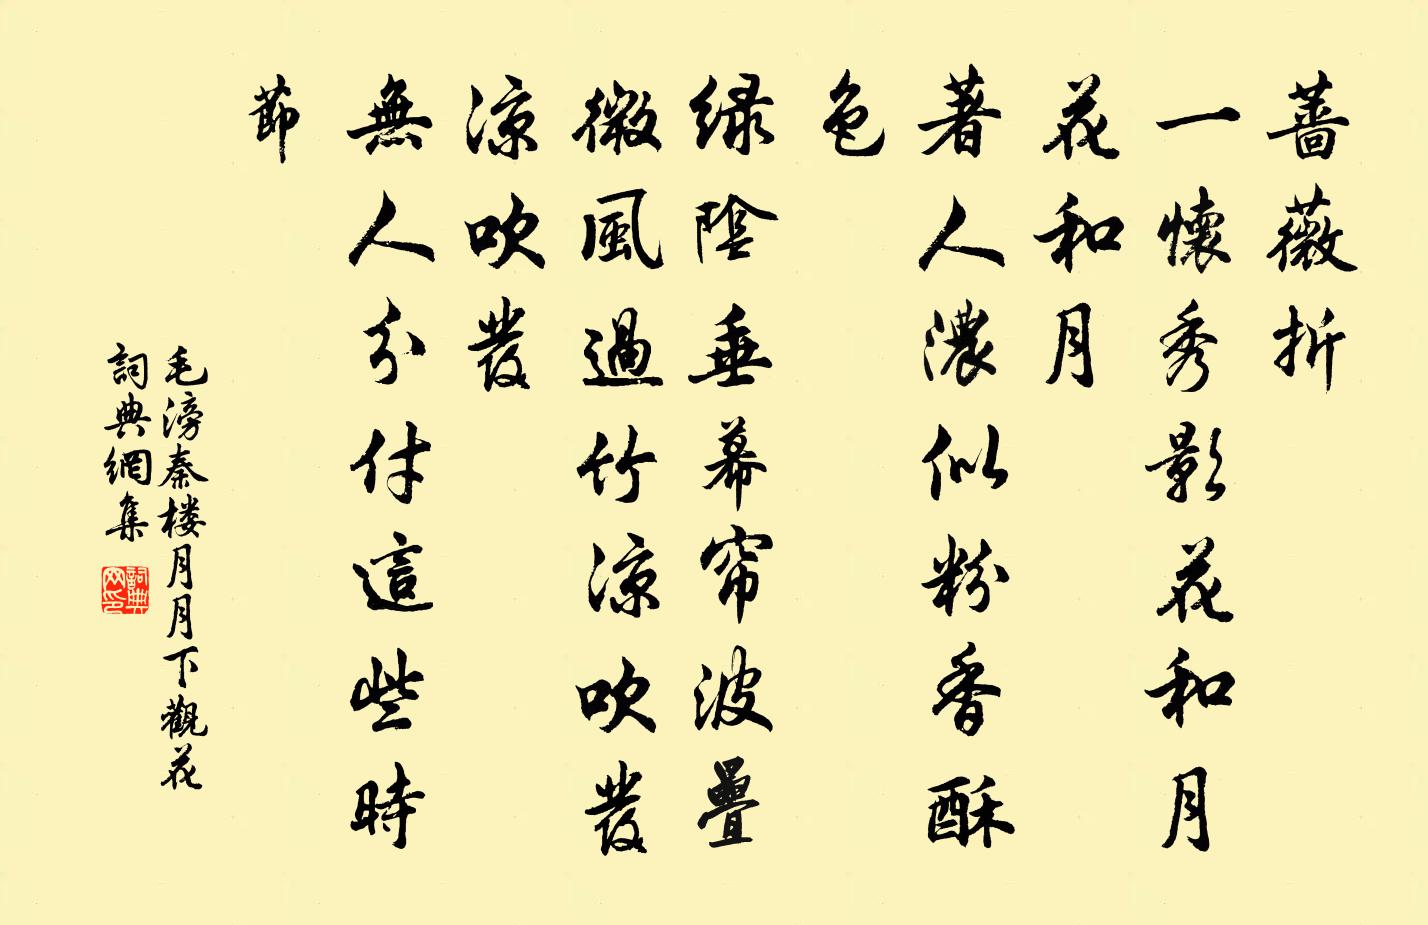 薔薇折
一懷秀影花和月
花和月
著人濃似粉香酥
色
緑陰垂幕帘波疊
微風過竹涼吹發
涼吹發
無人分付這些時
節
毛滂秦楼月月下觀花
詞典網集
詞典网印